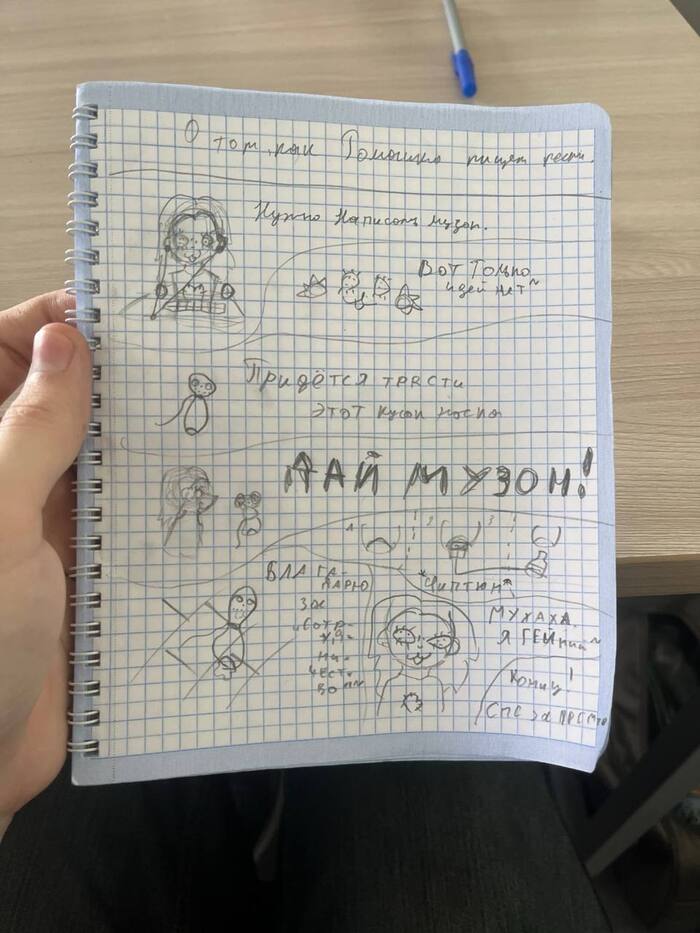 О том, как Гомошка пишет песни.
Нужно написать музон.
Вот только
идей нет~
Придётся трясти
этот кусок носка
ДАЙ МУЗОН!
1 2 3
БЛАГА-
ДАРЮ
ЗА
"СОТР-
УД-
НИ-
ЧЕСТ-
ВО"
*чиптюн*
МУХАХА.
Я ГЕЙний~
Конец!
СПС за